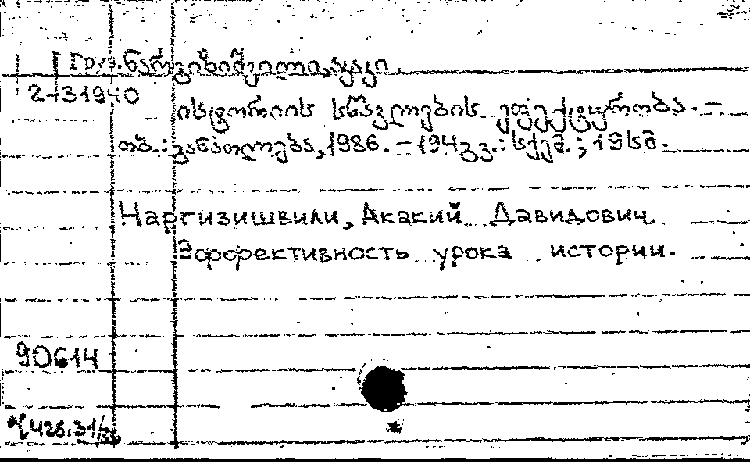 [Груз. ნარგიზიშვილი, აკაკი.
2-31940
ისტორიის სწავლების ეფექტურობა. –
თბ.: განათლება, 1986. – 194 გვ.: სქემ.; 19სმ.
Наргизишвили, Акакий Давидович
Эффективность урока истории.
90614